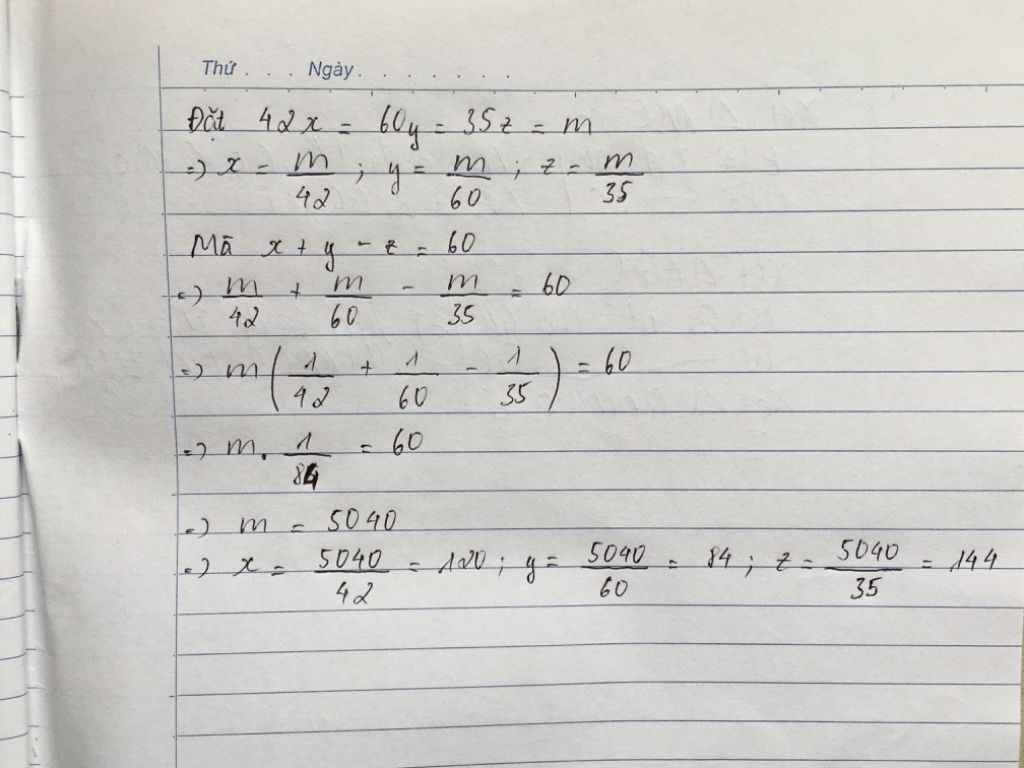 Thứ . . . Ngày . . . . . . . .
Đặt 42x = 60y = 35z = m
=) x = m/42 ; y = m/60 ; z = m/35
Mà x + y - z = 60
=) m/42 + m/60 - m/35 = 60
=) m(1/42 + 1/60 - 1/35) = 60
=) m . 1/84 = 60
=) m = 5040
=) x = 5040/42 = 120 ; y = 5040/60 = 84 ; z = 5040/35 = 144